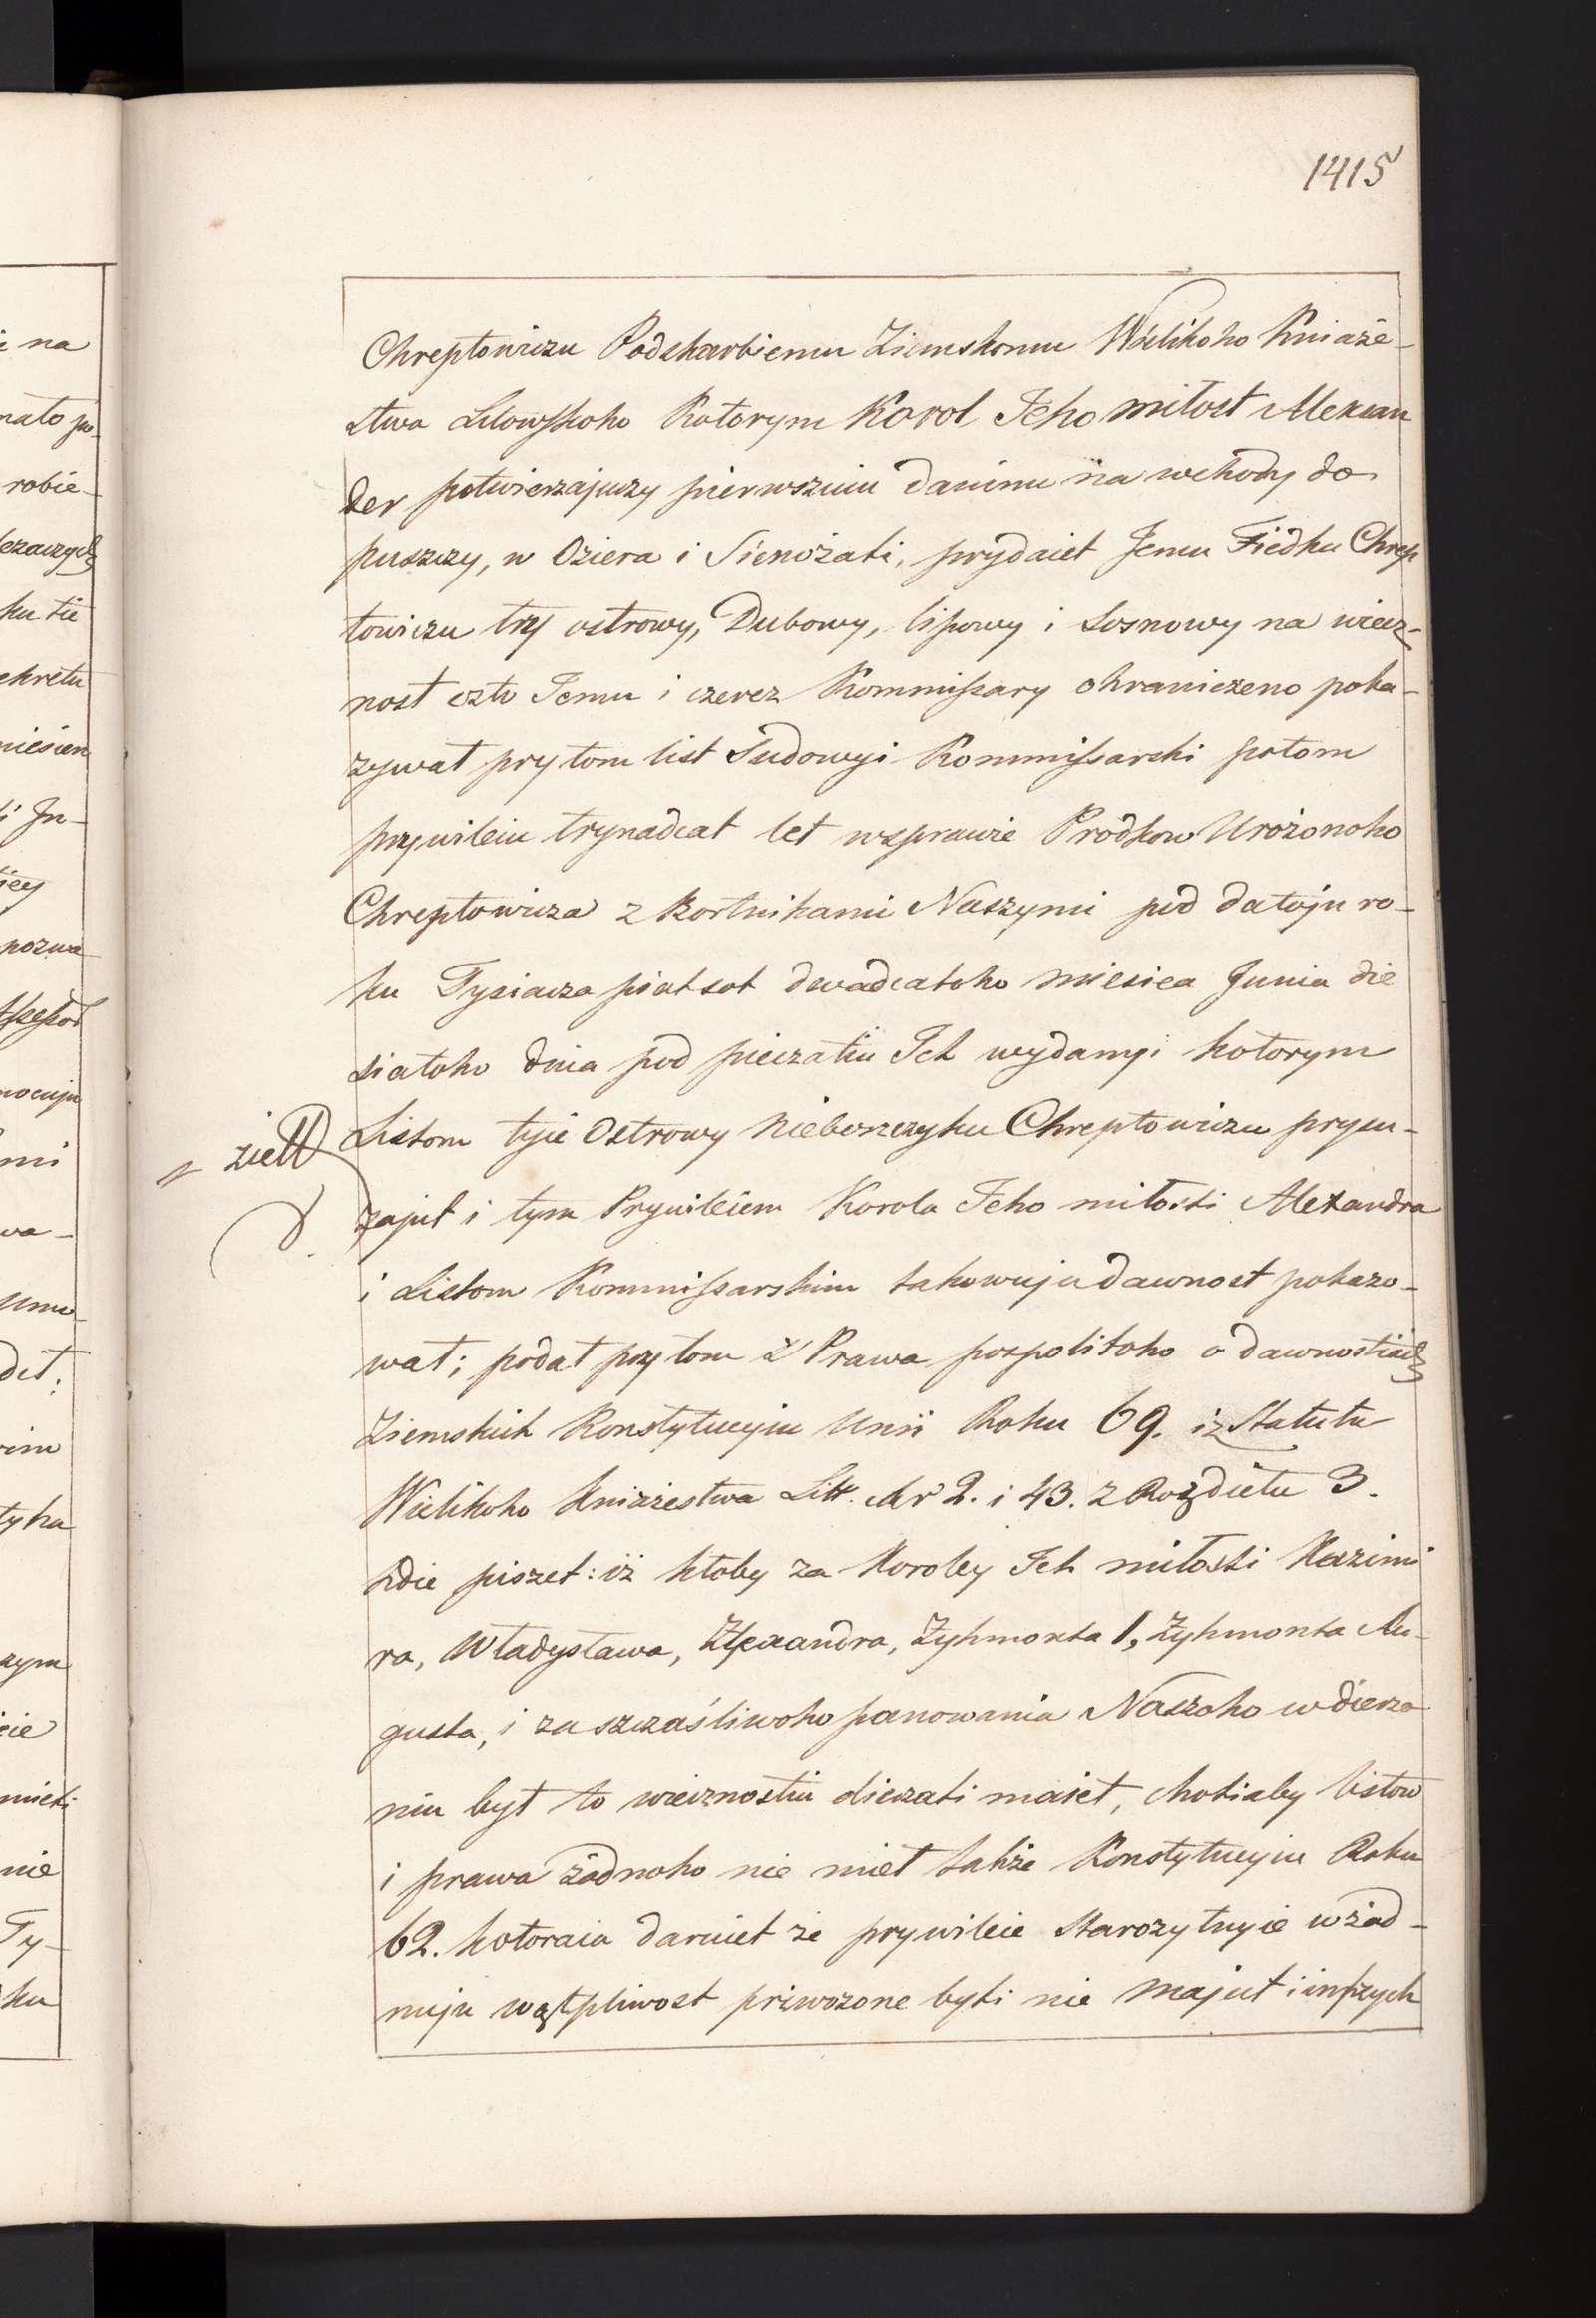 1415
Chreptowiczu Podskarbiemu Ziemskomu Wielikoho Kniaże-
stwa Litowskoho Kotorym Karol Jeho miłost Alexan
der potwierzajuczy pierwszuiu daninu na wchody do
puszczy, w Oziera i Sienożati, prydaiet Jemu Fiedku Chrep
towiczu try ostrowy, Dubowy, lipowy i Sosnowy na wiecz-
nost szto Jemu i czerez Kommissary ohraniczeno poka-
zywał pry tom list Sudowyi Kommissarski potom
prywileiu trynadcat let wsprawie Prodkow Urożonoho
Chreptowicza z Bortnikami Naszymi pod datoju ro-
ku Tysiacza piatsot dwadcatoho miesiea Junia die
siatoho dnia pod pieczatiu Ich wydanyi kotorym
Listom tyie Ostrowy Nieboszczyku Chreptowiczu prysu-
zajut i tym Prywileiem Korola Jeho miłosti Alexandra
i Listom Kommissarskim takowuju dawnost pokazo-
wał; podał prytom z Prawa pospolitoho o dawnostiach
Ziemskich Konstytucyiu Unii Roku 69. iz Statutu
Wielikoho Kniażestwa Litt. Ar 2. i 43. z Rozdiełu 3.
hdie piszet: iż ktoby za Koroley Ich miłosti Kazimi
ra, Władysława, Alexandra, Zyhmonta 1, Zyhmonta Au-
gusta, i za szczaśliwoho panowania Naszoho w dierza
niu był to wiecznostiu dierzati maiet, chotiaby listow
i prawa żadnoho nie mieł także Konstytucyiu Roku
62. kotoraia daruiet że prywileie Starożytnyie w żad-
nuju wątpliwost priwożone byti nie majut i inszych